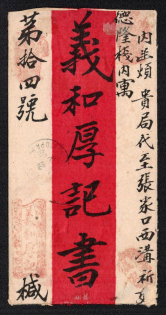 內並煩 貴局代至張家口西溝祈交
德隆棧內寓
義和厚記書
第拾四號
槭